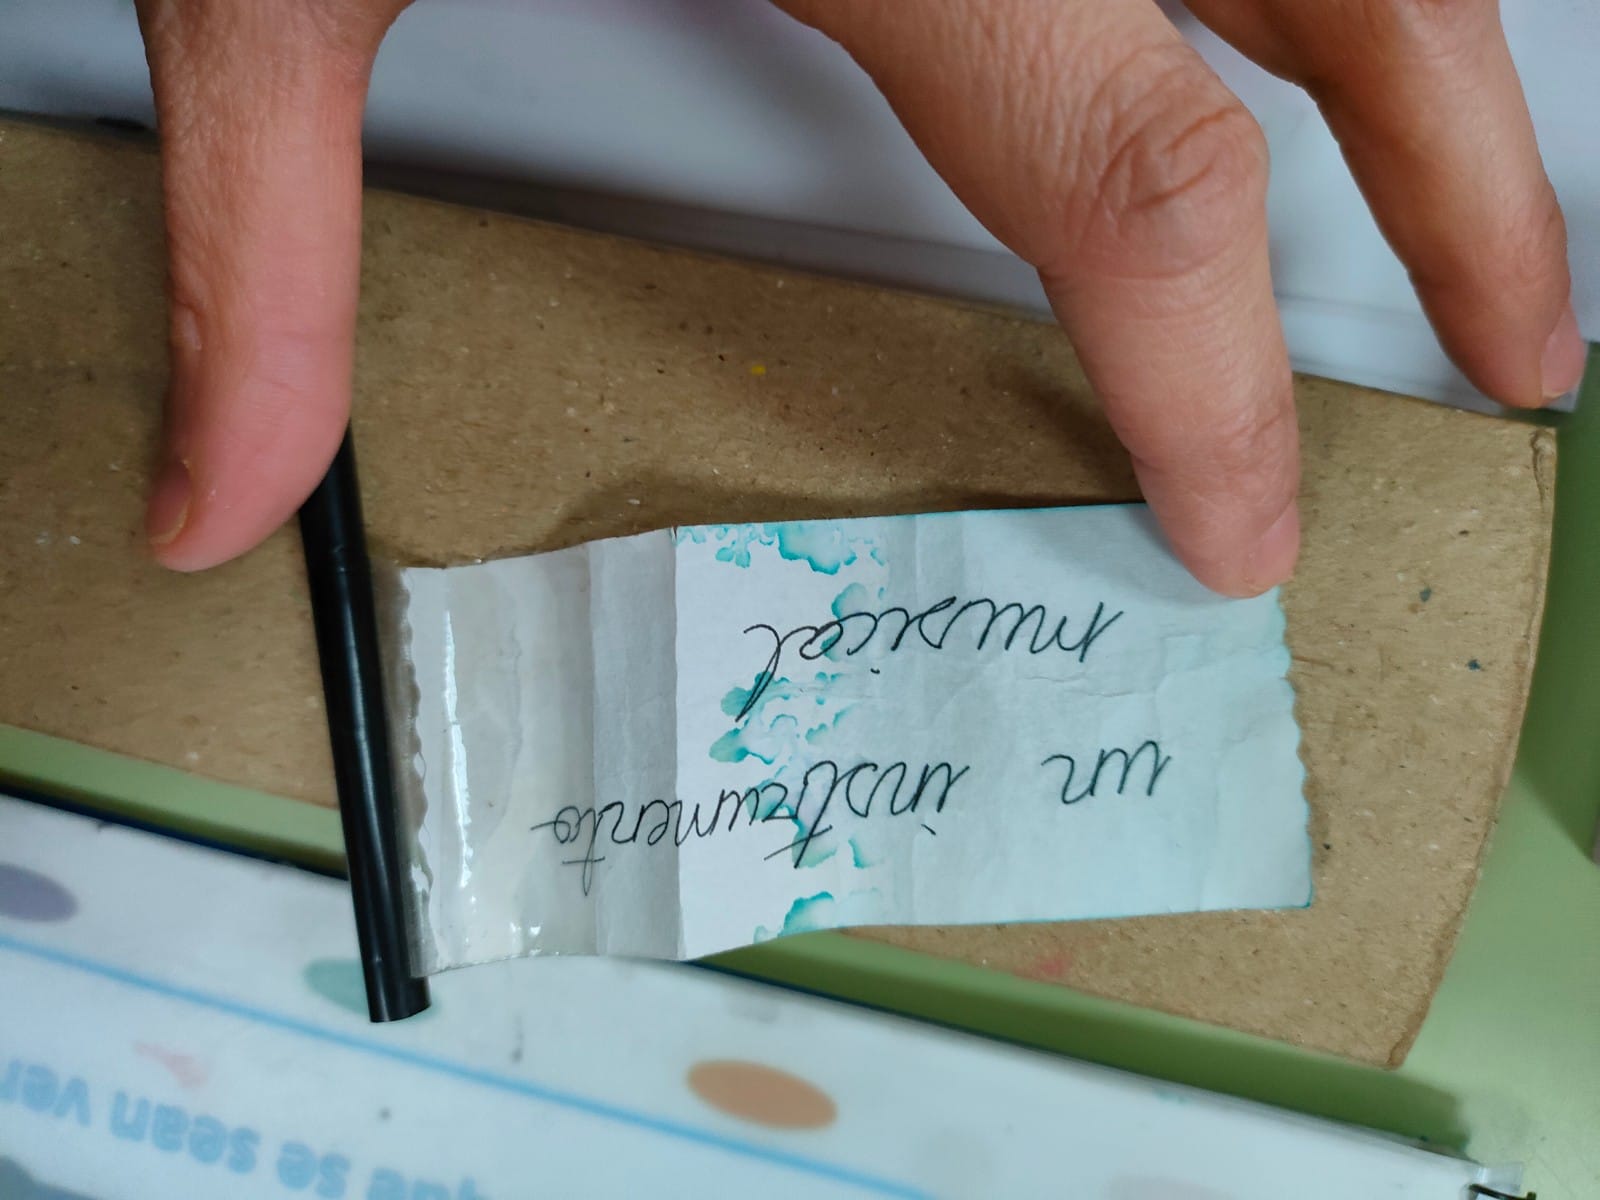 un instrumento
musical
que se sean ver